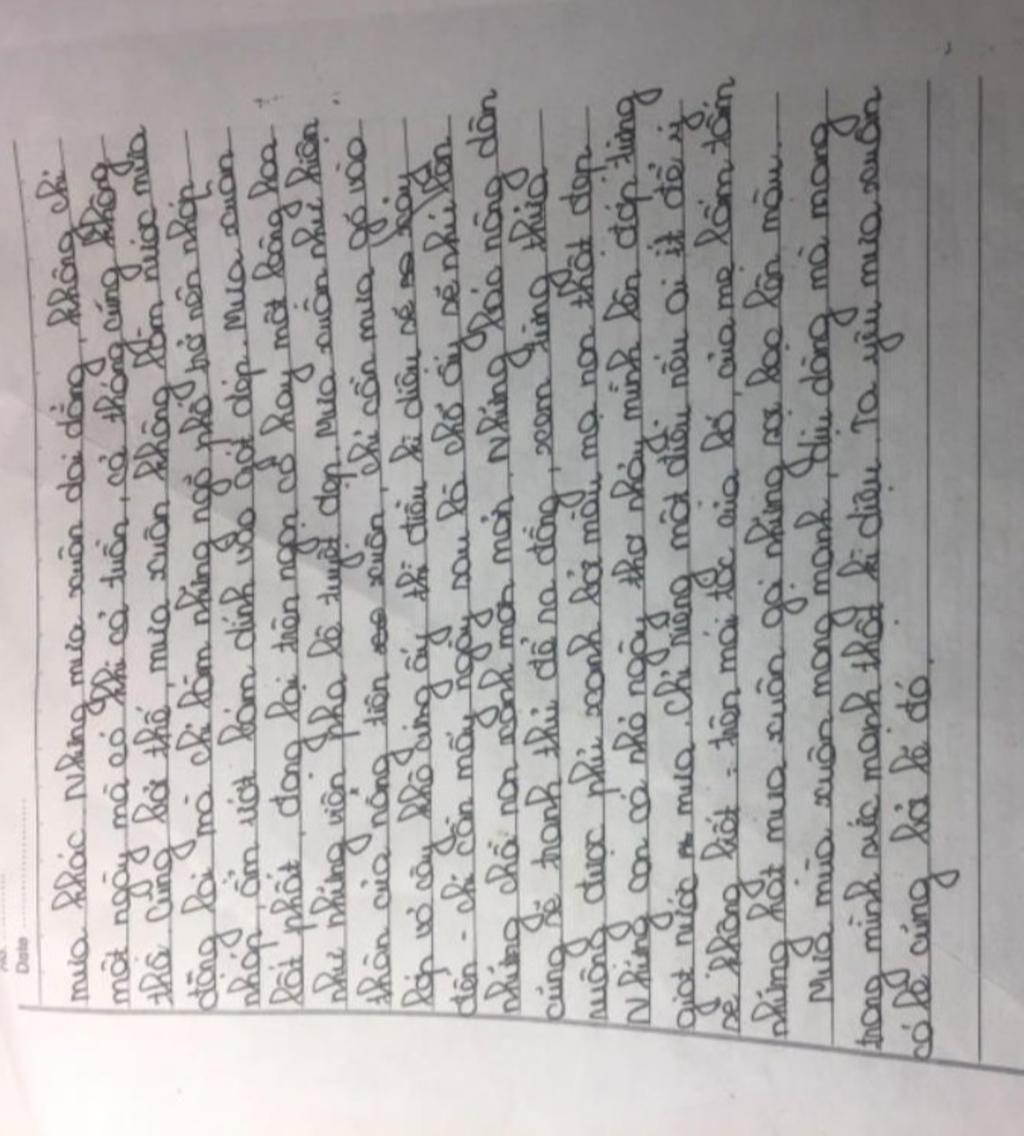 Date
mưa khác. Những mưa xuân dai dẳng, không chỉ
một ngày mà có khi cả tuần, cả tháng cũng không
thôi. Cũng bởi thế, mưa xuân không lớn, mưa
dông lại mà chỉ làm những ngõ phố trở nên nhớp
nháp, ẩm ướt bám dính vào gót dép. Mưa xuân
lất phất, đọng lại trên ngọn cỏ hay một bông hoa
như những viên pha lê tuyệt đẹp. Mưa xuân như hiện
thân của nàng tiên xuân, chỉ cần mưa gõ vào
lớp vỏ cây khô cứng ấy thì điều kì diệu sẽ xảy
đến - chỉ cần mấy ngày sau là chỗ ấy sẽ nhú lên
những chồi non xanh mơn mởn. Những bác nông dân
cũng sẽ tranh thủ để ra đồng, xem từng thửa
ruộng được phủ xanh bởi màu mạ non thật đẹp.
Những con cò nhỏ ngây thơ nhảy mình lên đớp từng
giọt nước mưa. Chỉ riêng một điều nếu ai ít để ý
sẽ không biết: trên mái tóc của bố, của mẹ lấm tấm
những hạt mưa xuân gợi những sợi bạc lẫn màu.
Mưa mùa xuân mong manh, dịu dàng mà mang
trong mình sức mạnh thật kì diệu. Ta yêu mưa xuân
có lẽ cũng bởi lẽ đó.